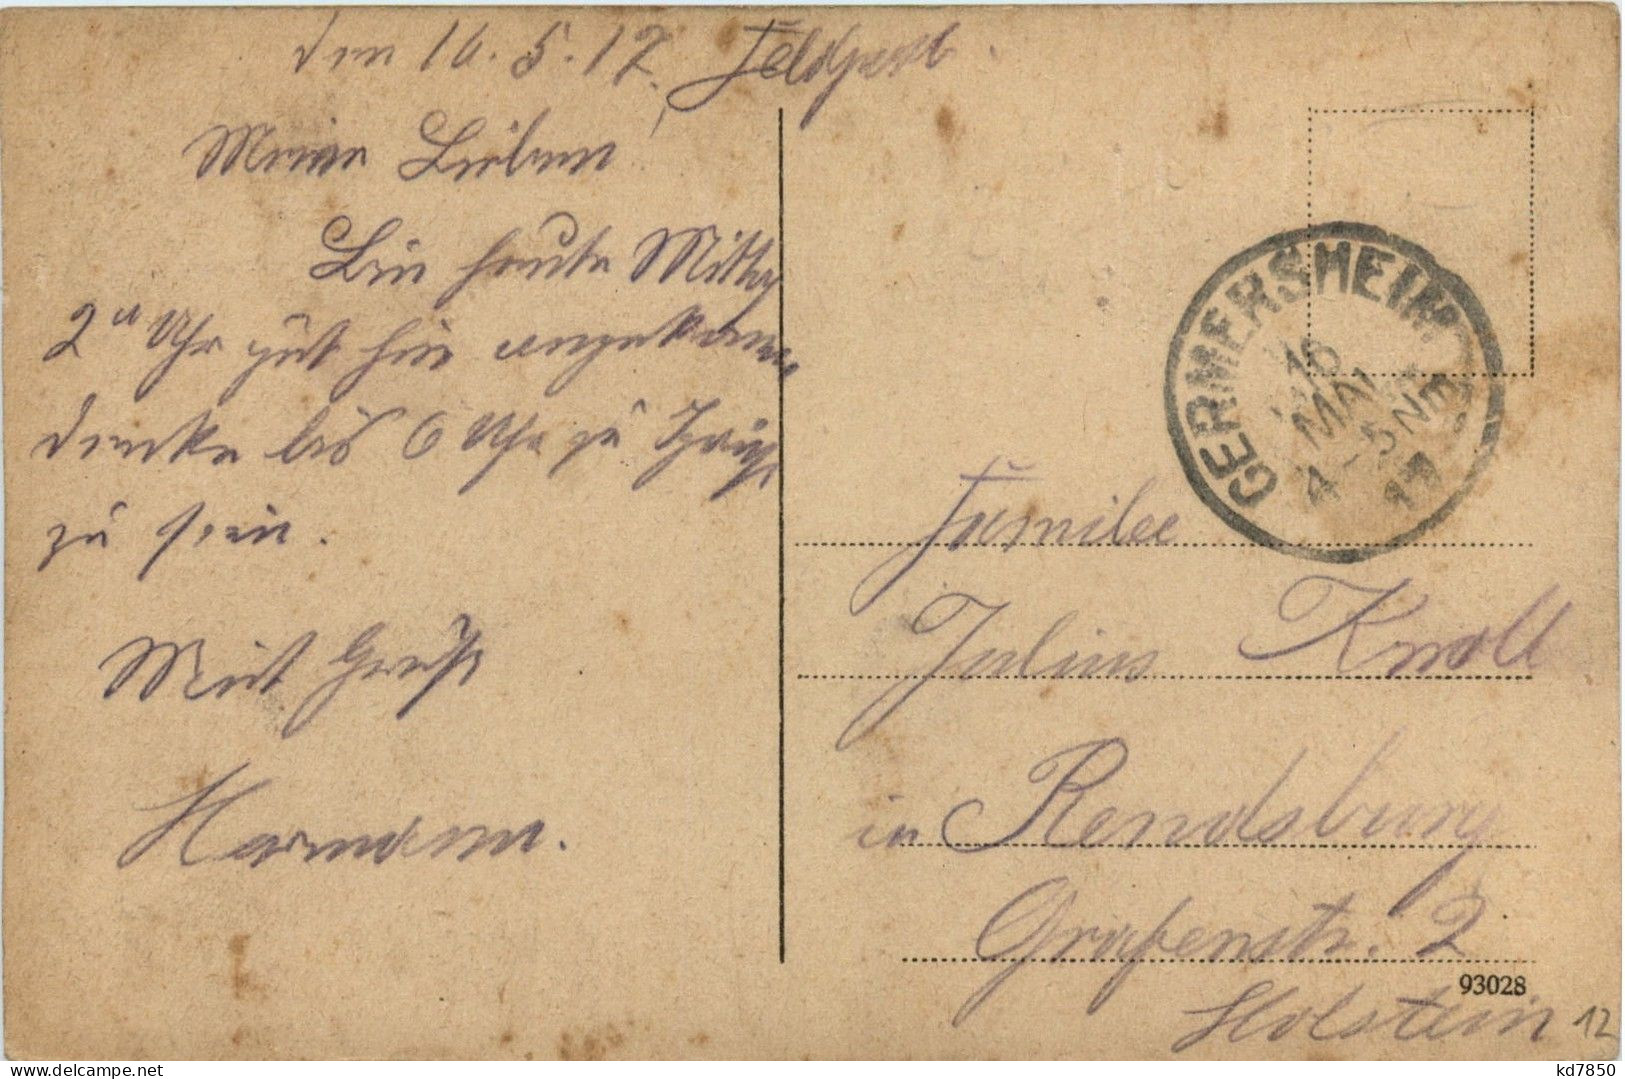 den 16.5.17. Feldpost.
Meine Lieben!
Bin heute Mittag
2 Uhr gut hier angekommen
denke bis 6 Uhr zu
zu sein.
Mit Gruß
Hermann.
GERMERSHEIM
16
MAI
4-5NM
17
Familie
Julius Knoll
in Rendsburg
Grafenstr. 2
93028
Holstein
12
kd7850